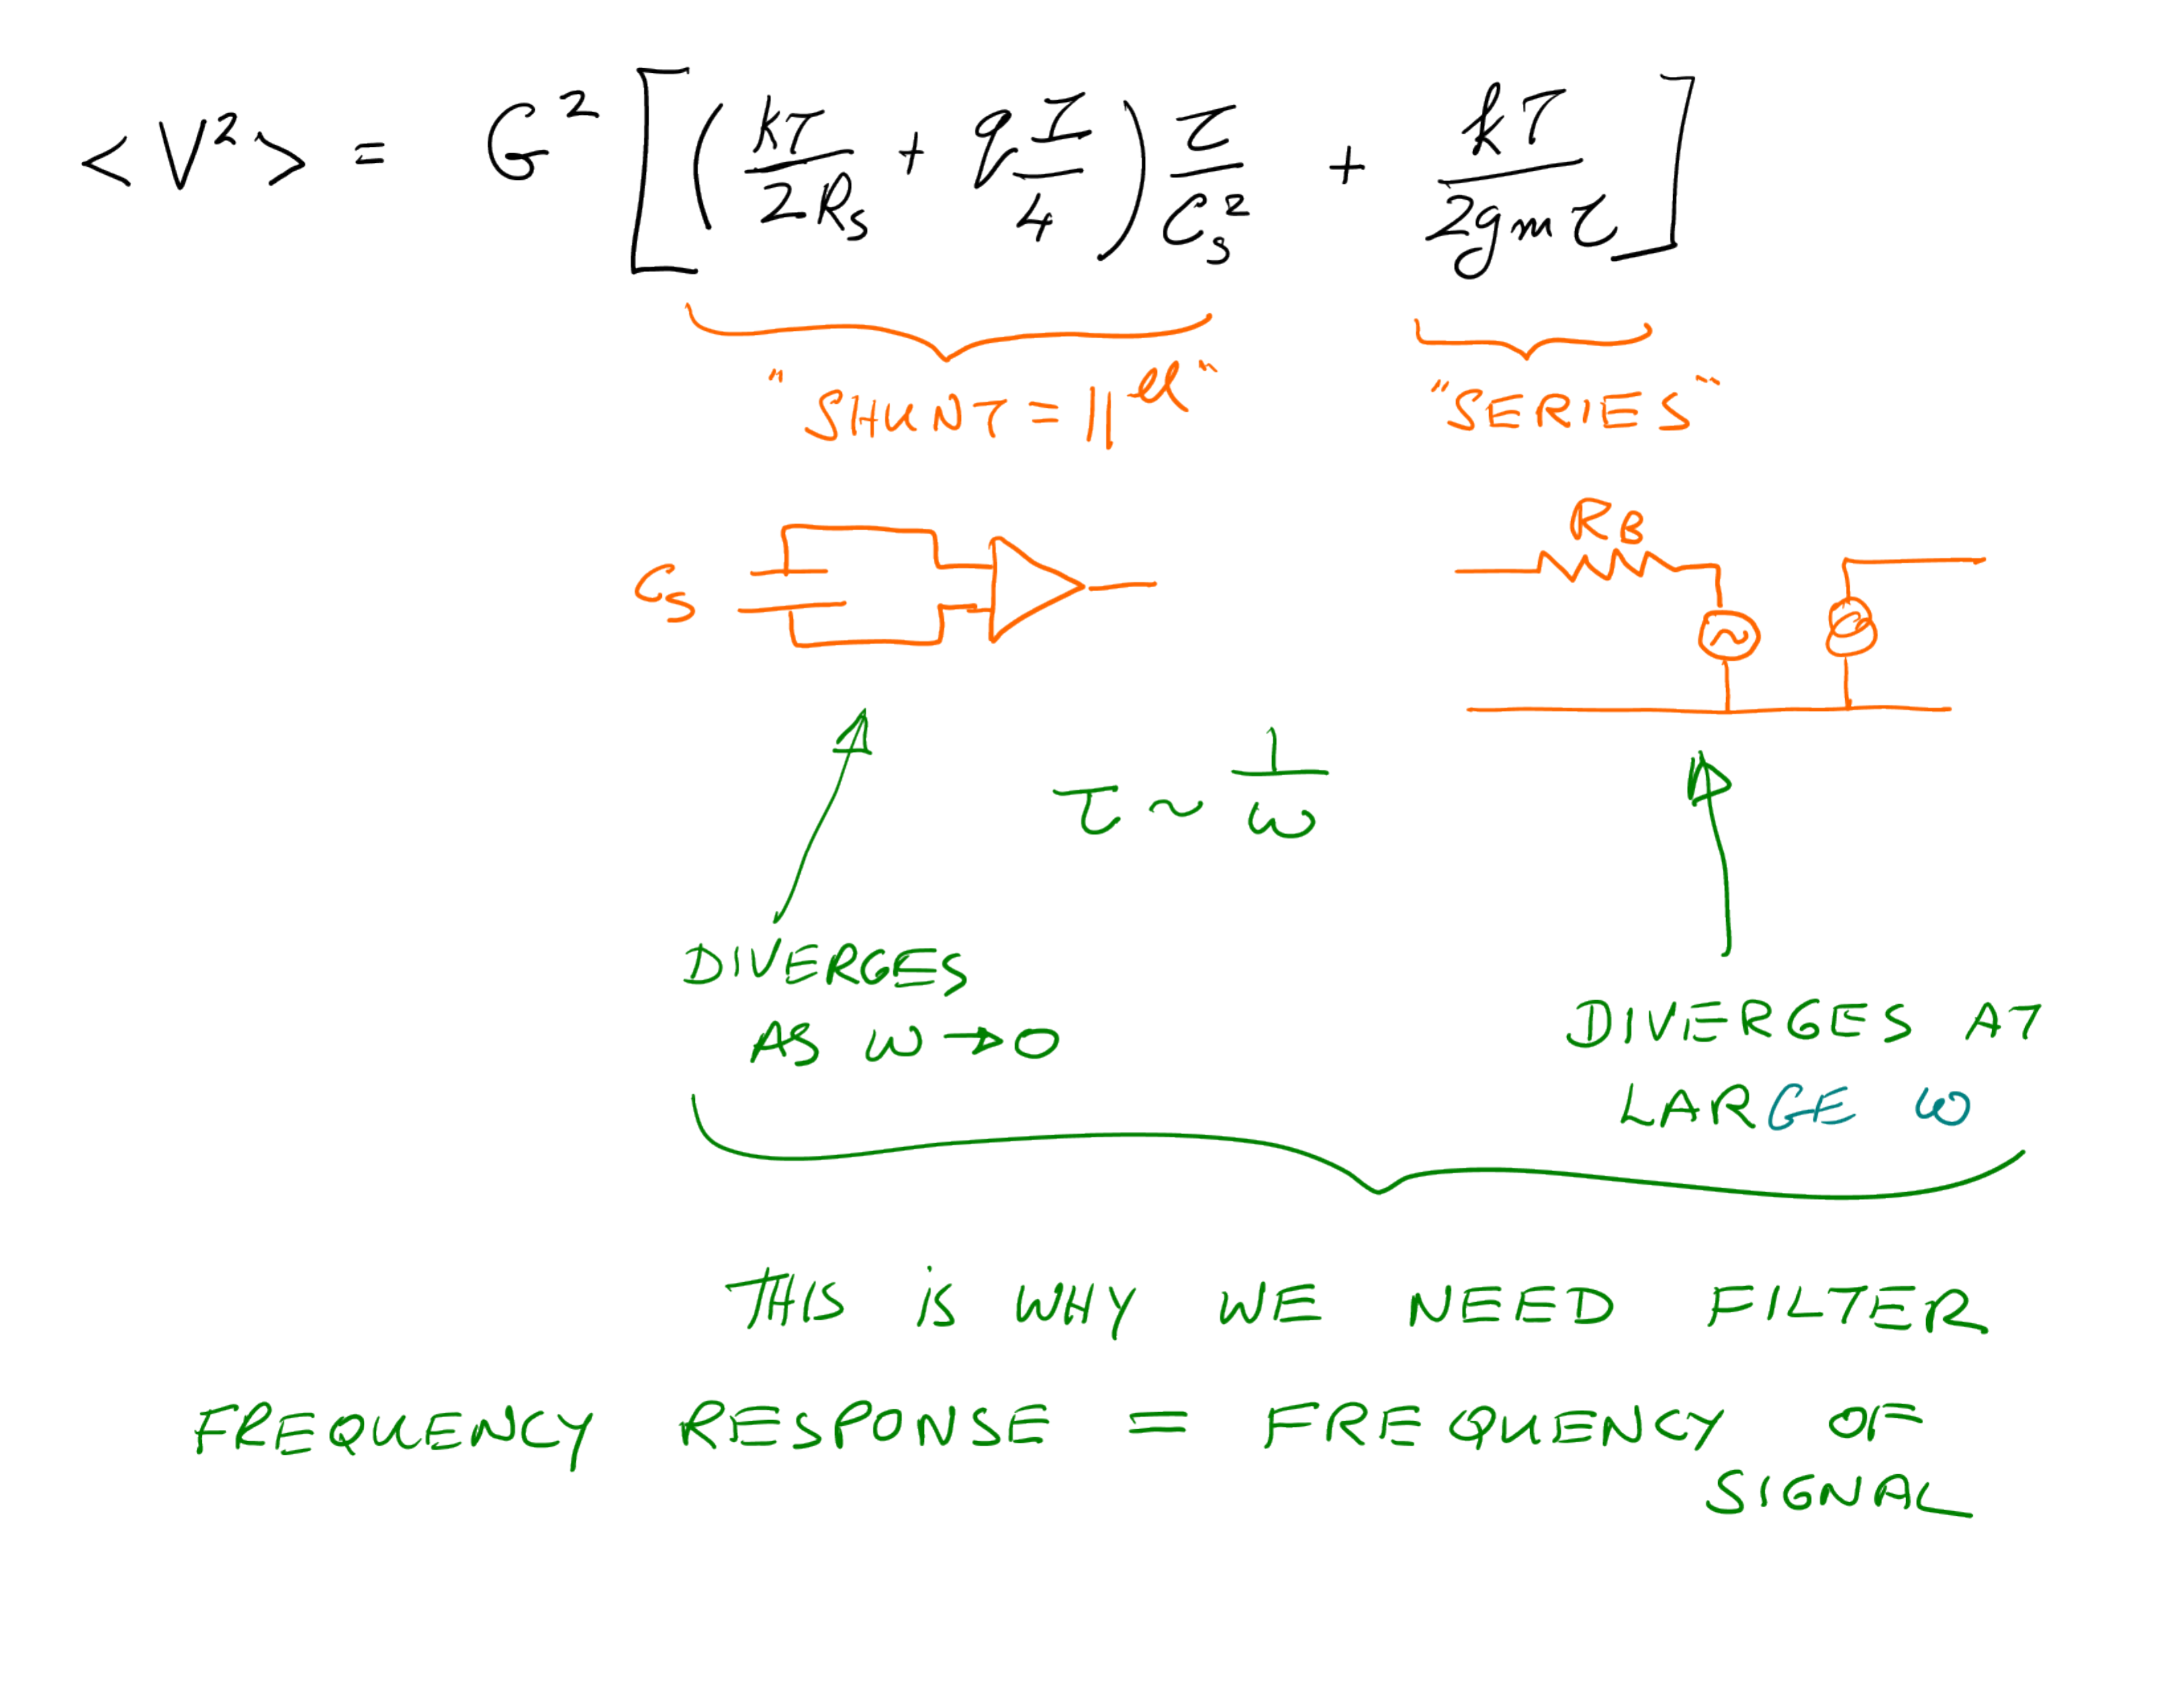 <V²> = G² [ ( kT/2R_s + q I/4 ) τ/C_s² + kT/2gmτ ]
"SHUNT = ||el" "SERIES"
R_B
C_s
τ ~ 1/ω
DIVERGES
AS ω → 0
DIVERGES AT
LARGE ω
THIS IS WHY WE NEED FILTER
FREQUENCY RESPONSE = FREQUENCY OF
SIGNAL